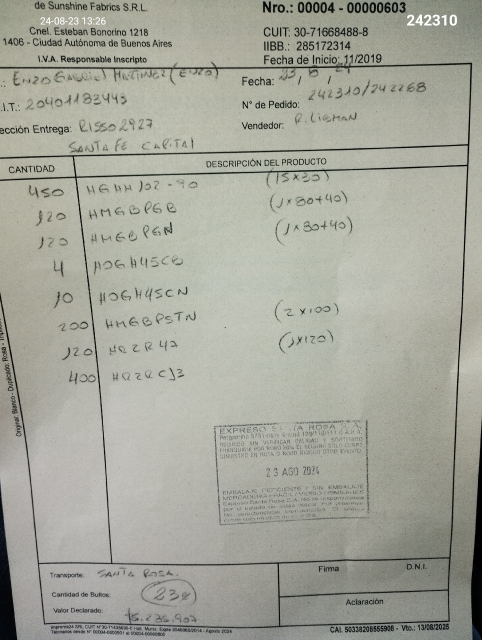 de Sunshine Fabrics S.R.L.
Cnel. Esteban Bonorino 1218
1406 - Ciudad Autónoma de Buenos Aires
I.V.A. Responsable Inscripto
24-08-23 13:26
Nro.: 00004 - 00000603
242310
CUIT: 30-71668488-8
IIBB.: 285172314
Fecha de Inicio: 11/2019
.: ENZO GABRIEL MARTINEZ (ENZO)
Fecha: 23, 8, 24
.I.T.: 20401183443
N° de Pedido: 242310/242268
ección Entrega: RISSO 2927
Vendedor: R. LIGMAN
SANTA FE CAPITAL
CANTIDAD DESCRIPCIÓN DEL PRODUCTO
450 HGHH102-90 (15x30)
120 HMGBPGB (1x80+40)
120 HMGBPGN (1x80+40)
4 HOGH45CB
10 HOGH45CN
200 HMGBPSTN (2x100)
120 HR2R47 (1x120)
400 HR2RC13
EXPRESO SANTA ROSA
23 AGO 2024
Transporte: SANTA ROSA.
Cantidad de Bultos: 23
Valor Declarado: 15.236.907
Firma D.N.I.
Aclaración
CAI. 50338208555908 - Vto.: 13/08/2025